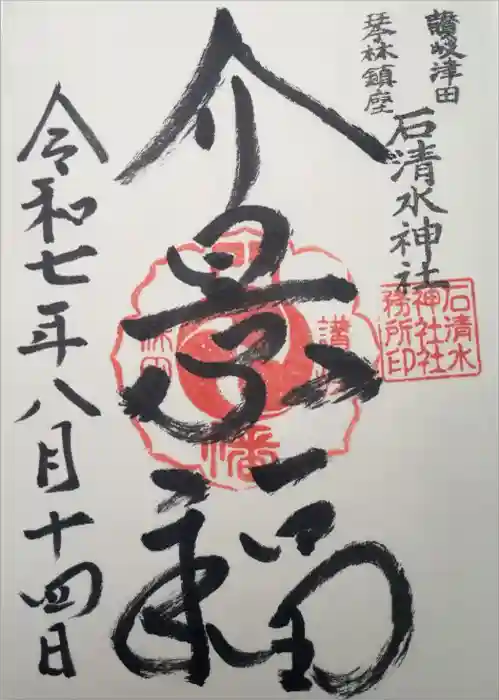 讃岐津田
琴林鎮座
石清水神社
石清水
神社社
務所印
介景福
令和七年八月十四日